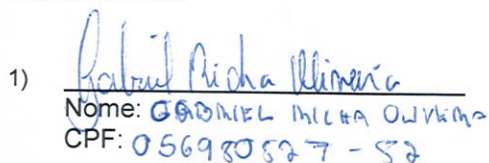 1) Gabriel Micha Oliveira
Nome: GABRIEL MICHA OLIVEIRA
CPF: 056980527-52